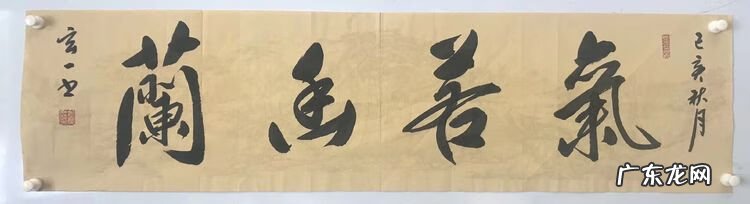 己亥秋月
氣若幽蘭
玄一书
广东龙网